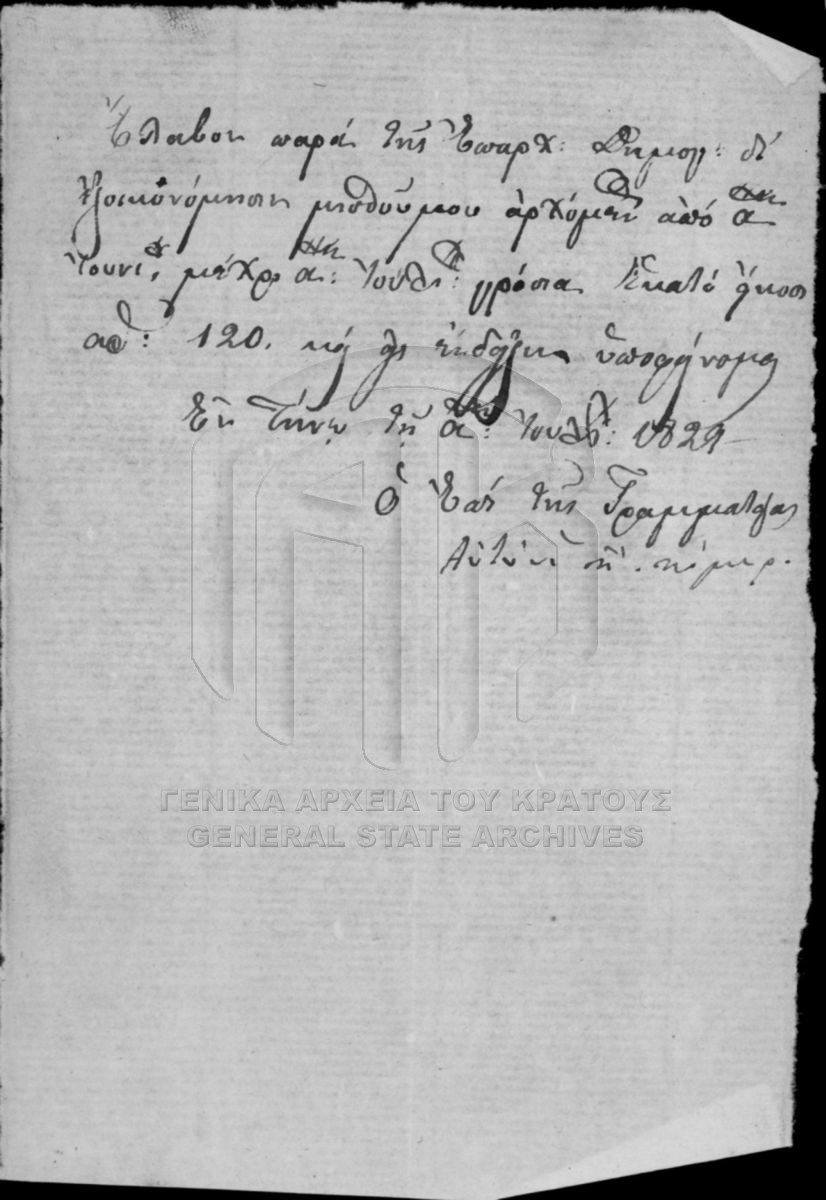 Ἔλαβον παρά τῆς Ἐπαρχ: Δημογ: δι'
ἐξοικονόμησιν μισθοῦ μου ἀρχόμεν ἀπό α
Ἰουνί, μέχρι α: Ἰουλί: γρόσια Ἑκατό ἤκοσι
αρ: 120. καὶ εἰς ἔνδειξιν ὑποφαίνομαι
Ἐν Τήνῳ τῇ α: Ἰουλί: 1829
Ὁ Ἐπί τῆς Γραμματείας
ΓΕΝΙΚΑ ΑΡΧΕΙΑ ΤΟΥ ΚΡΑΤΟΥΣ
GENERAL STATE ARCHIVES